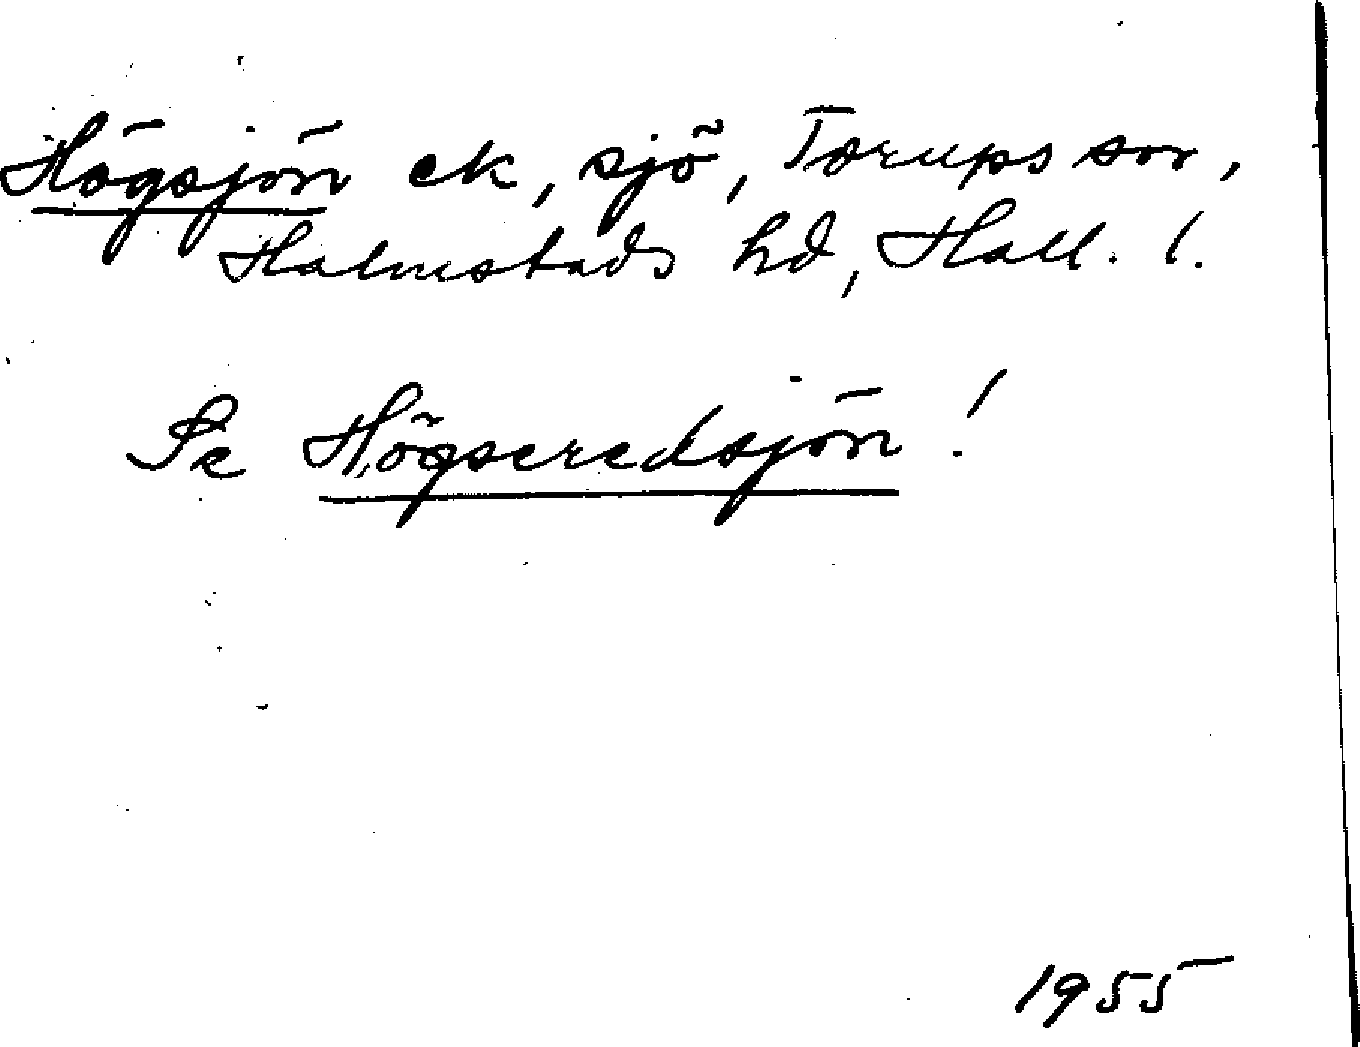 Högsjön ek, sjö, Torups sn,
Halmstads hd, Hall. l.
Se Högseredsjön!
1955